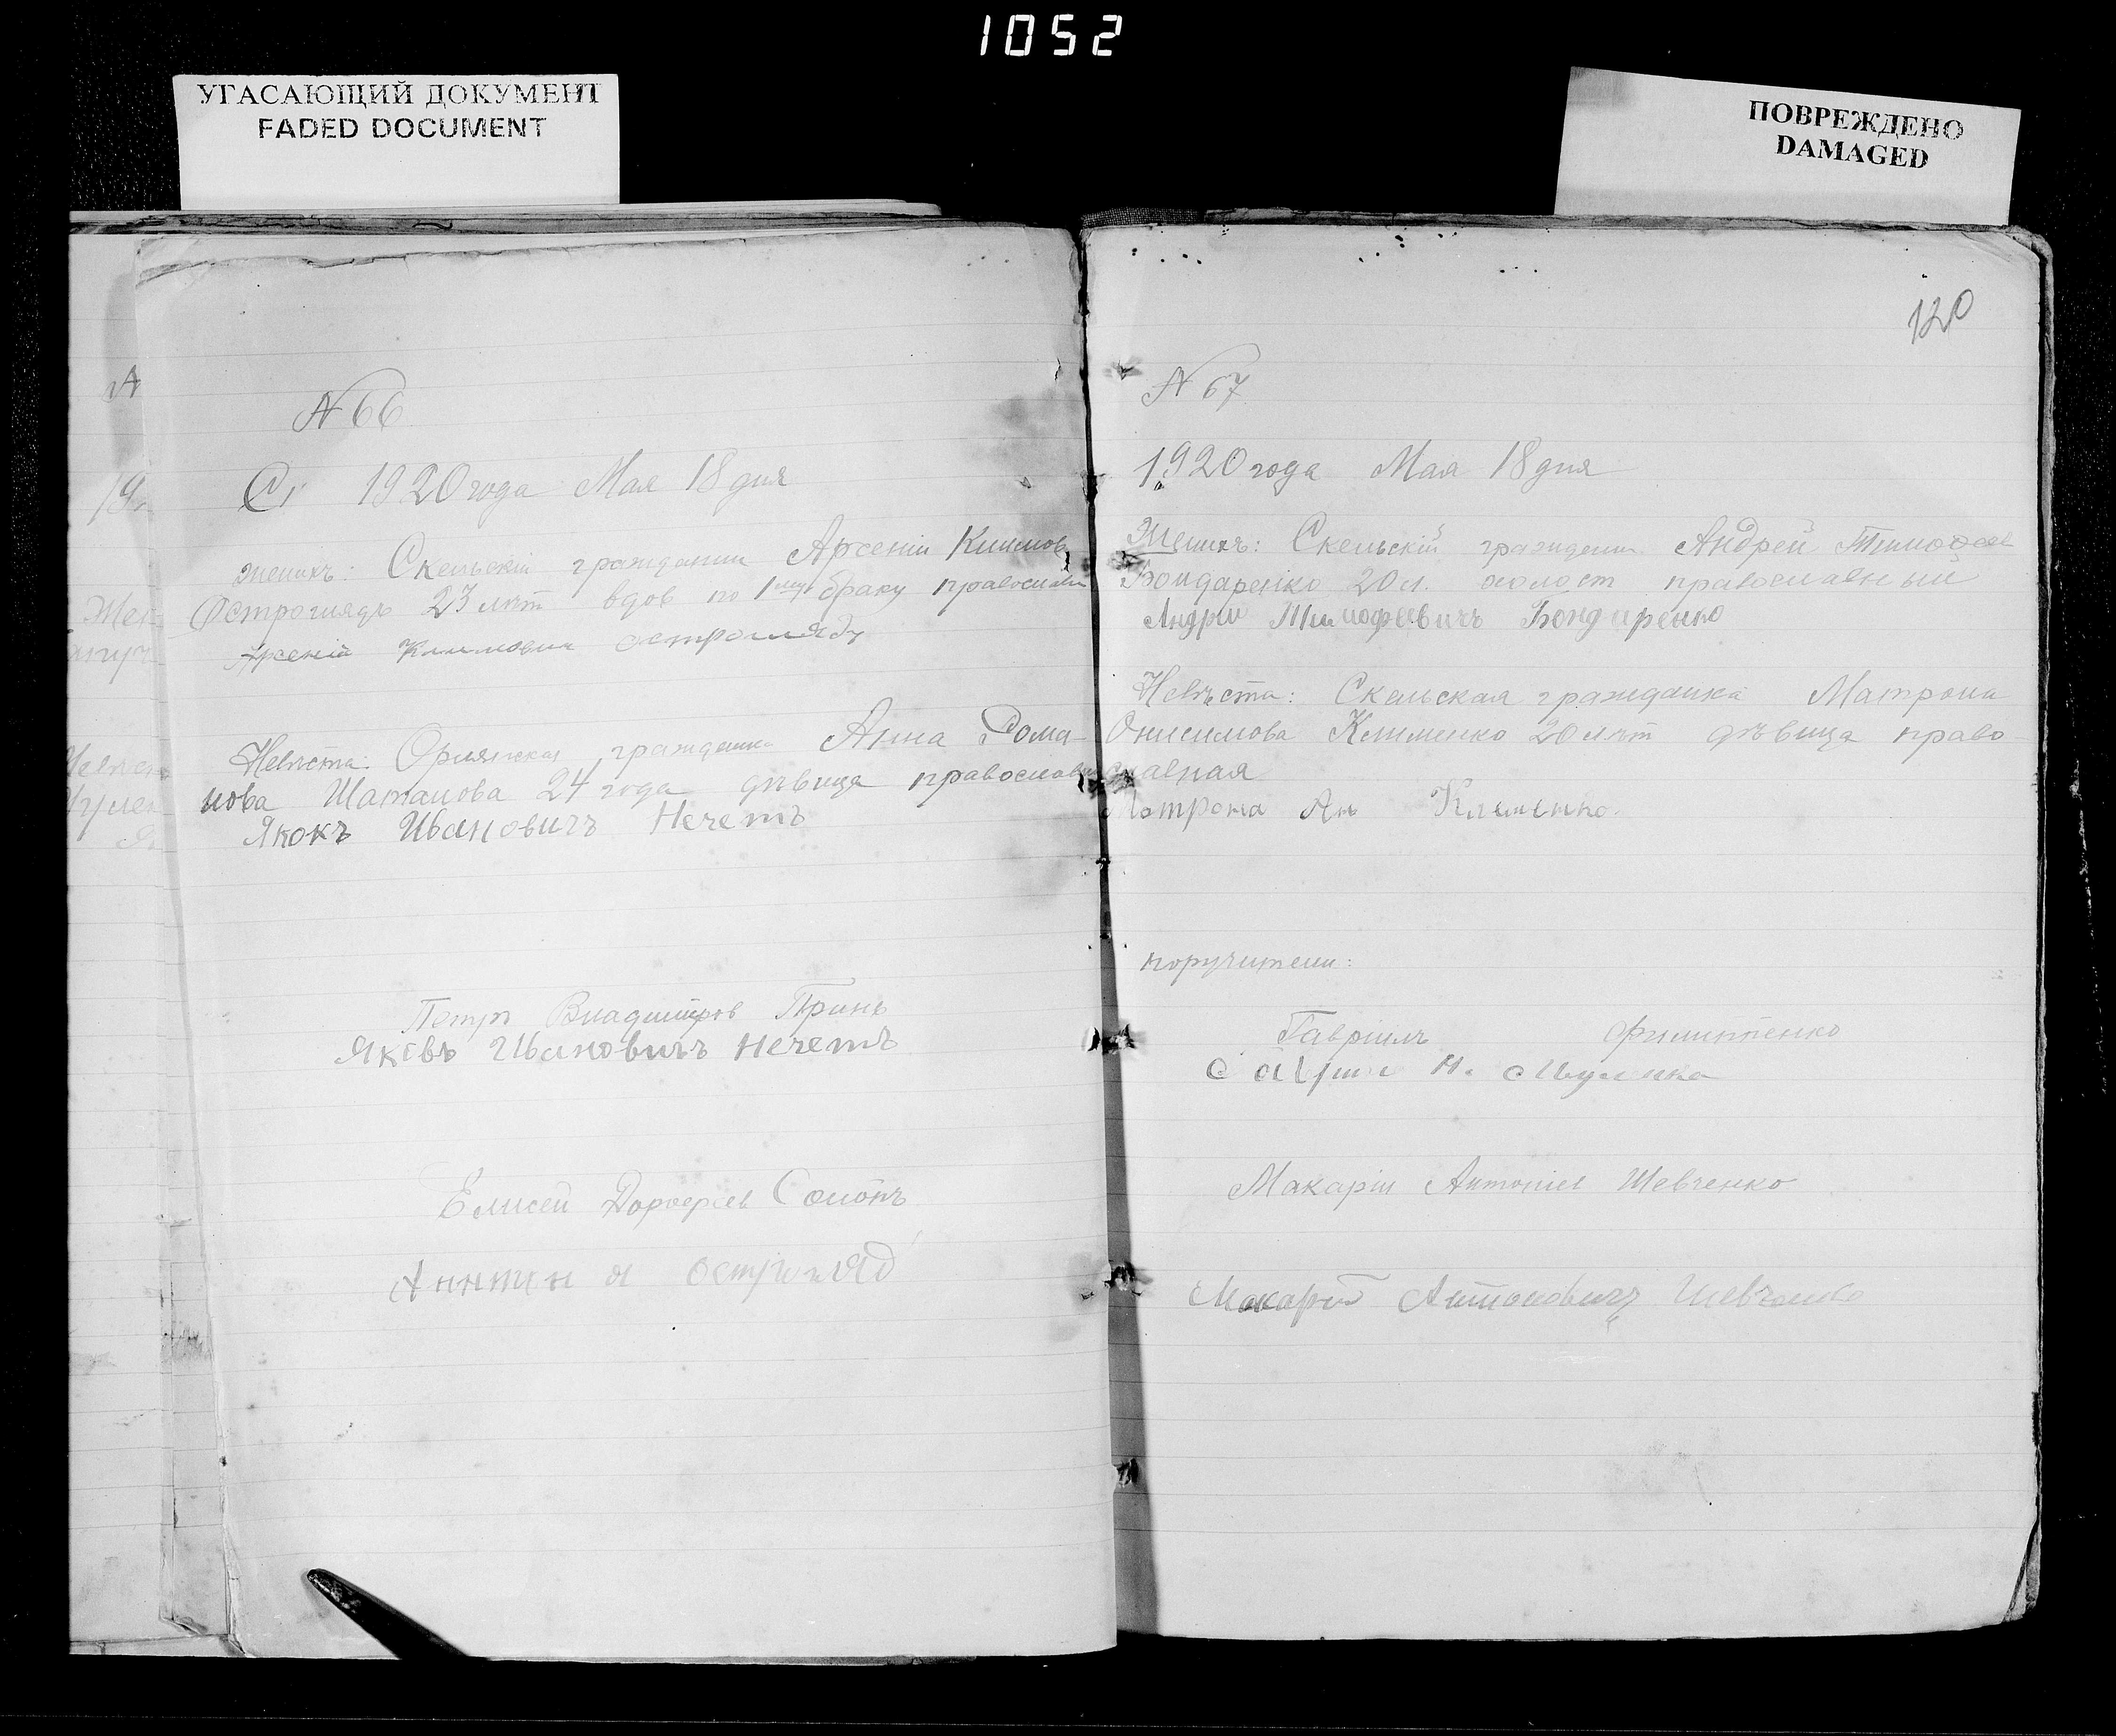 1052
УГАСАЮЩИЙ ДОКУМЕНТ
FADED DOCUMENT
ПОВРЕЖДЕНО
DAMAGED
N 66
1920 года Мая 18 дня
женихъ: Скельскій гражданин Арсеній Климов
Остроглядъ 23 лѣт вдов по 1му браку православн
Арсеній Климович остроглядъ
Невѣста: гражданка Анна Рома-
нова Шатанова 24 года дѣвица православн
Якокъ Ивановичъ Нечетъ
Петръ Владимиров Гринь
Яковъ Ивановичъ Нечетъ
Елисей Дорофеев
120
N 67
1920 года Мая 18 дня
Женихъ: Скельскій гражданин Андрей Тимофеев
Бондаренко 20 л. холост православный
Андрей Тимофеевичъ Бондаренко
Невѣста: Скельская гражданка Матрона
Онисимова Клименко 20 лѣт дѣвица право-
славная
Матрона Клименко.
поручители:
Гавріилъ
Макарій Антоніев Шевченко
Макарій Антоновичъ Шевченко